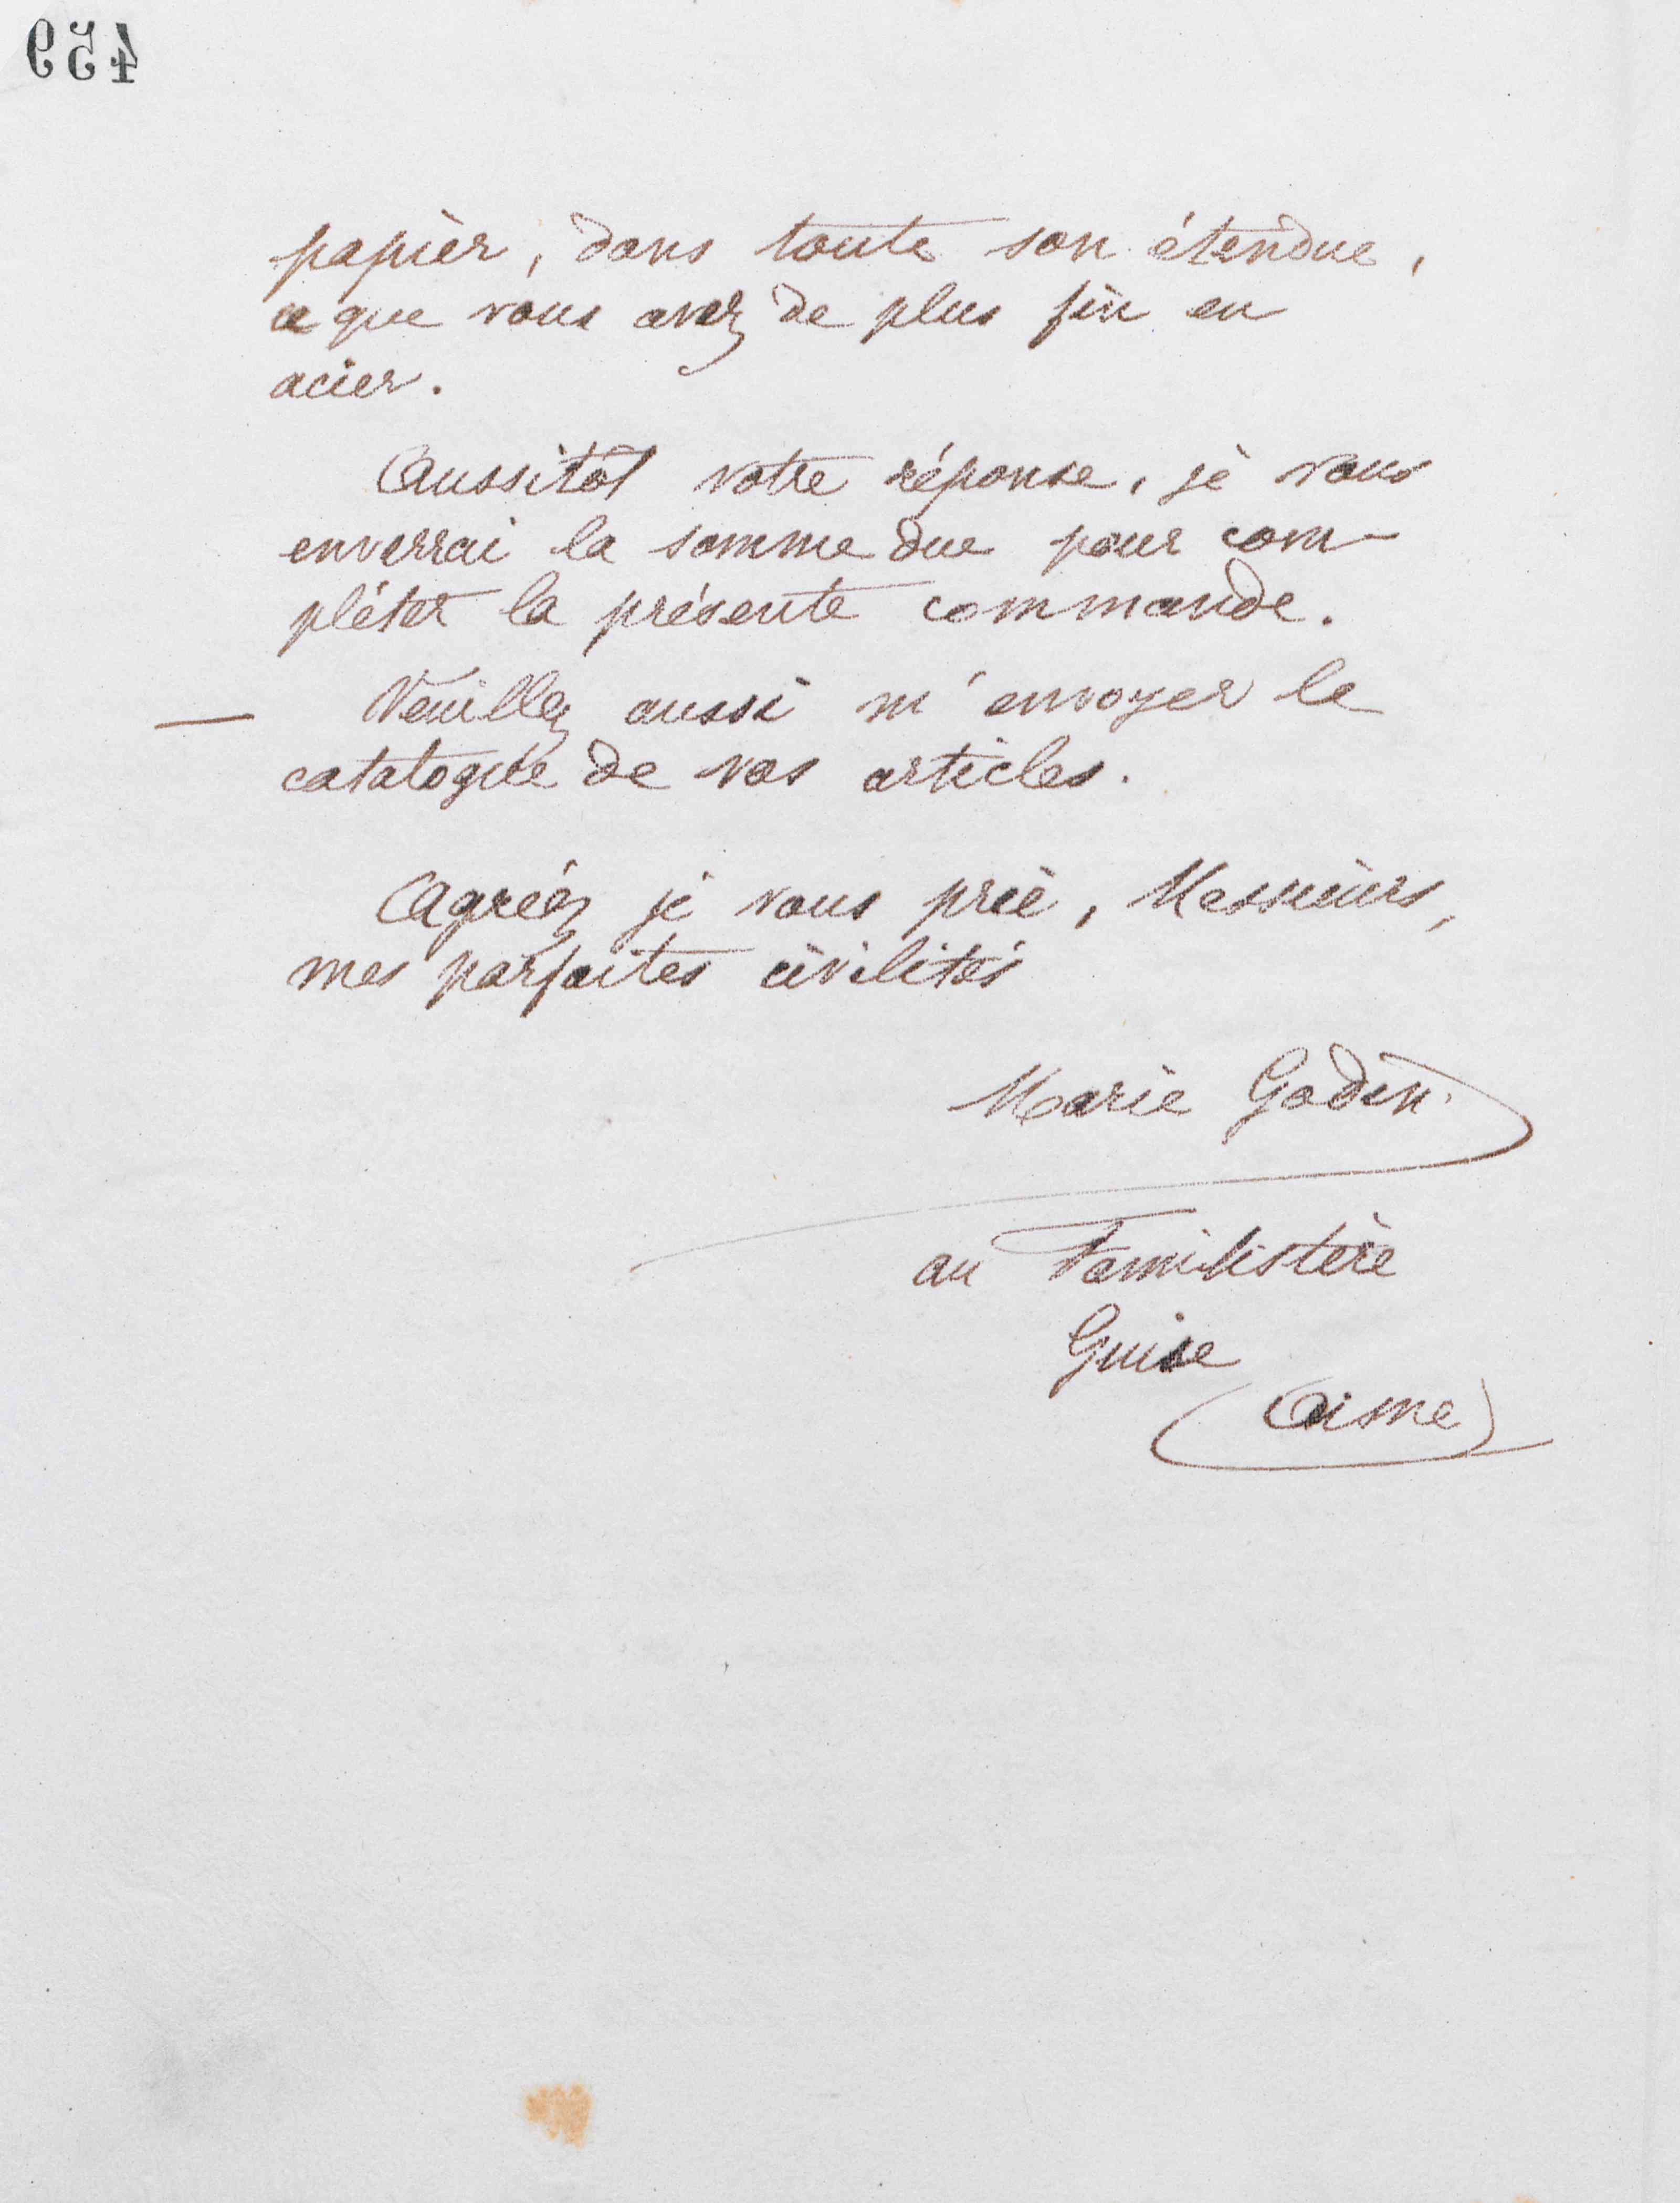 459
papier, dans toute son étendue,
ce que vous avez de plus fin en
acier.
Aussitôt votre réponse, je vous
enverrai la somme due pour com-
pléter la présente commande.
— Veuillez aussi m'envoyer le
catalogue de vos articles.
Agréez je vous prie, Messieurs,
mes parfaites civilités
Marie Godin
au Familistère
Guise
(Aisne)